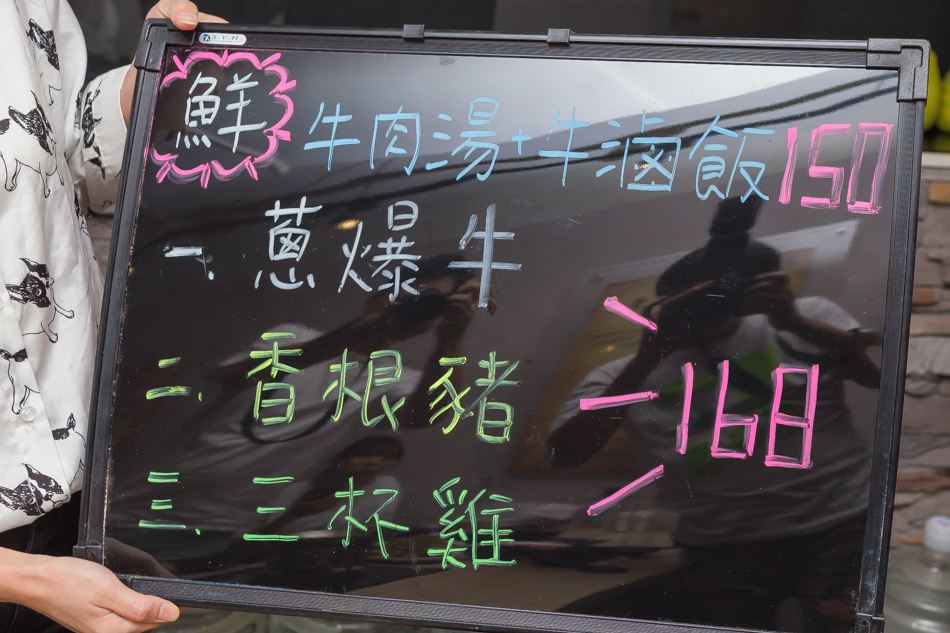 S.Y.H.
鮮 牛肉湯+牛滷飯 150
一、蔥爆牛
二、香根豬 168
三、三杯雞